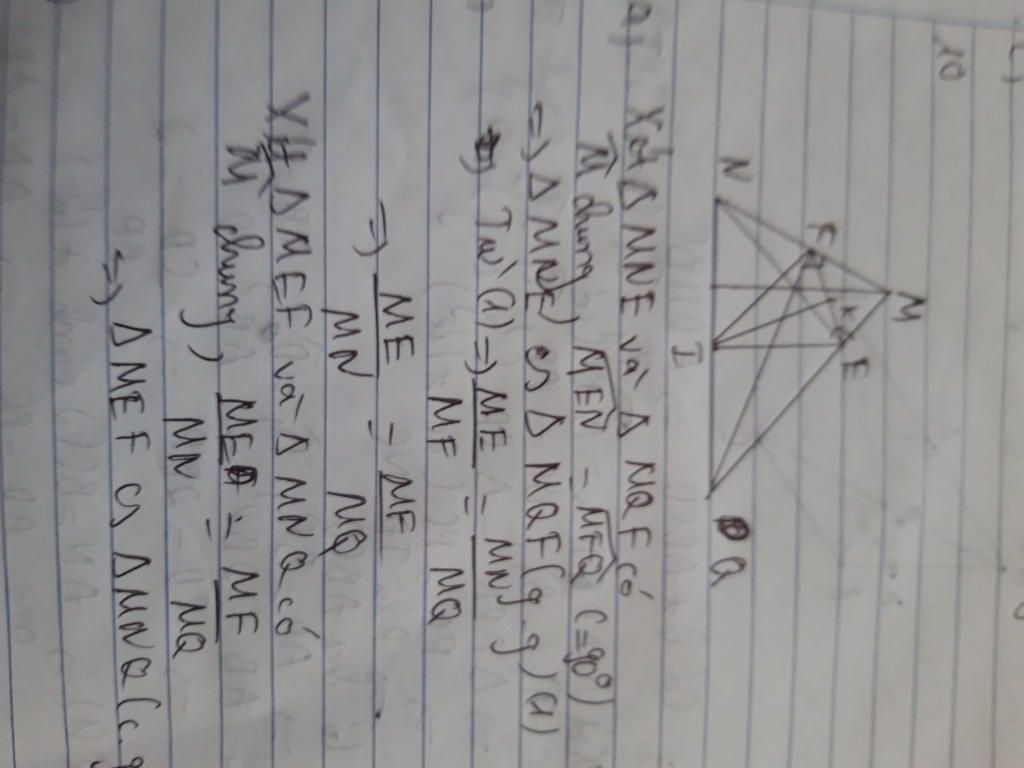 10
M
F
K
E
N
I
Q
a) Xét Δ MNE và Δ MQF có
M̂ chung, MEN = MFQ (=90°)
=> Δ MNE ∽ Δ MQF (g.g) (1)
b) Từ (1) => ME/MF = MN/MQ
=> ME/MN = MF/MQ
Xét Δ MEF và Δ MNQ có
M̂ chung, ME/MN = MF/MQ
=> Δ MEF ∽ Δ MNQ (c.g